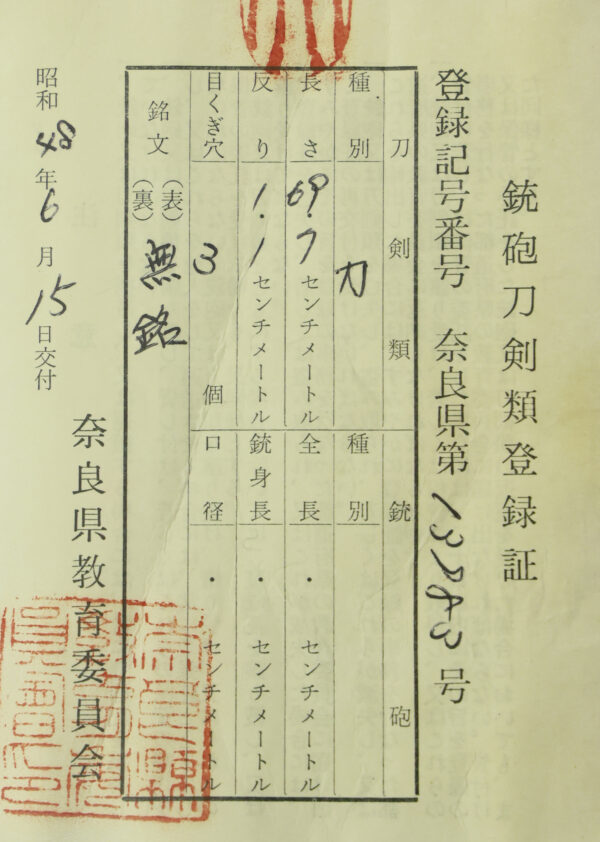 銃砲刀剣類登録証
登録記号番号 奈良県第 号
刀剣類
種別 刀
長さ 69.7センチメートル
反り 1.1センチメートル
目くぎ穴 3個
銘文(表)(裏)無銘
銃砲
種別
全長 ・ センチメートル
銃身長 ・ センチメートル
口径 ・ センチメートル
昭和48年6月15日交付
奈良県教育委員会